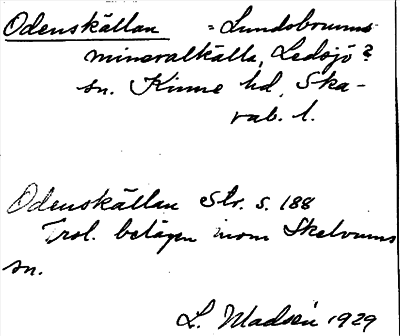 Odenskällan = Lundsbrunns
mineralkälla, Ledsjö?
sn. Kinne hd, Ska-
rab. l.
Odenskällan Slr. s. 188
Trol. belägen inom Skälvums
sn.
L. Madsén 1929